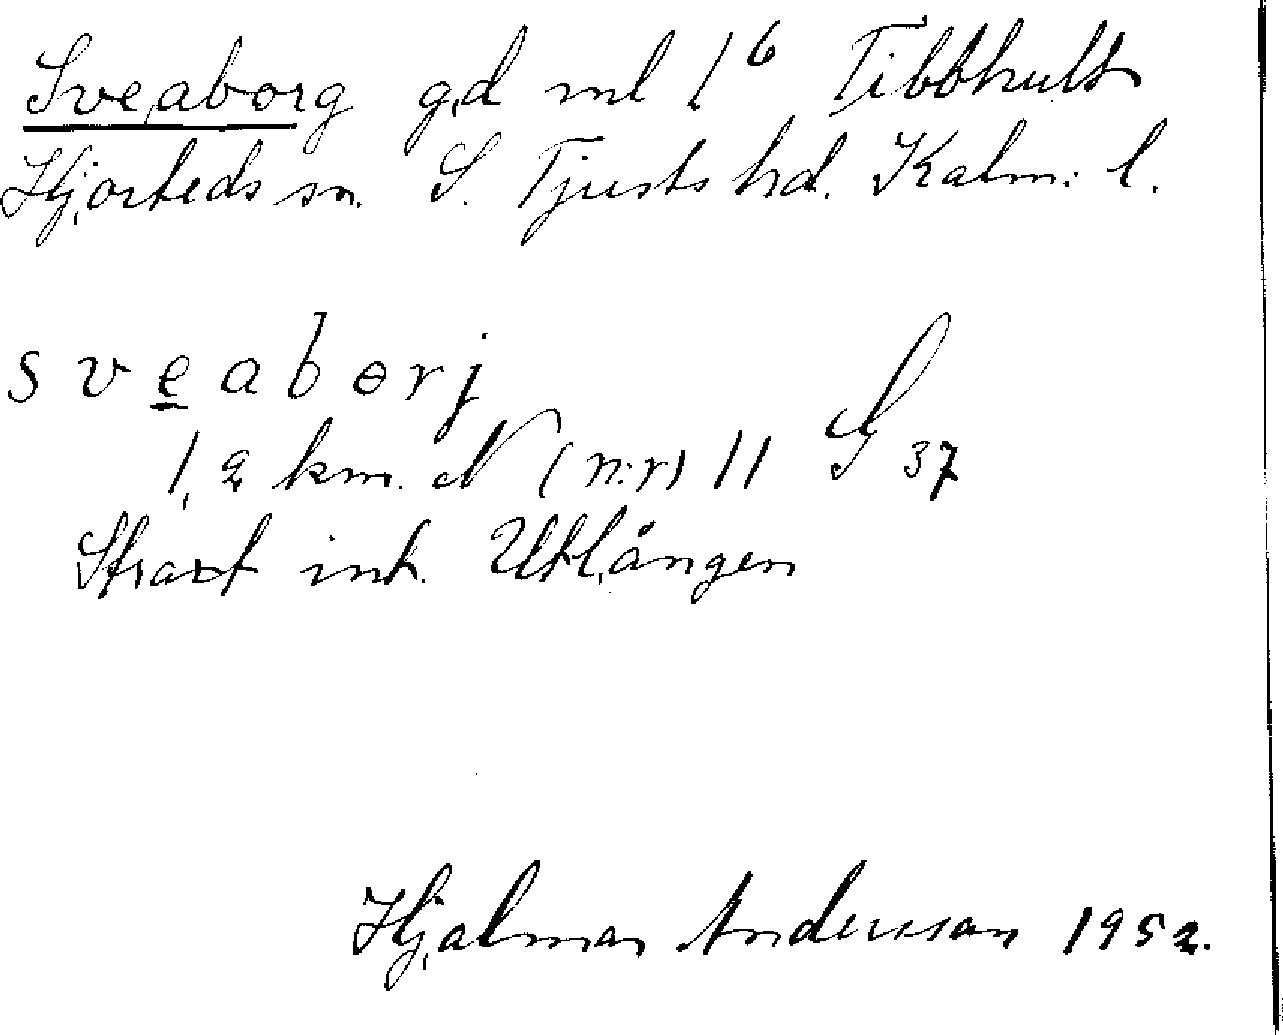 Sveaborg gd ml 1⁶ Tibbhult
Hjorteds sn. S. Tjusts hd. Kalm. l.
s v e a b ɵ r j
1,2 km. N (n:r) 11 S 37
Strax int. Utlången
Hjalmar Andersson 1952.